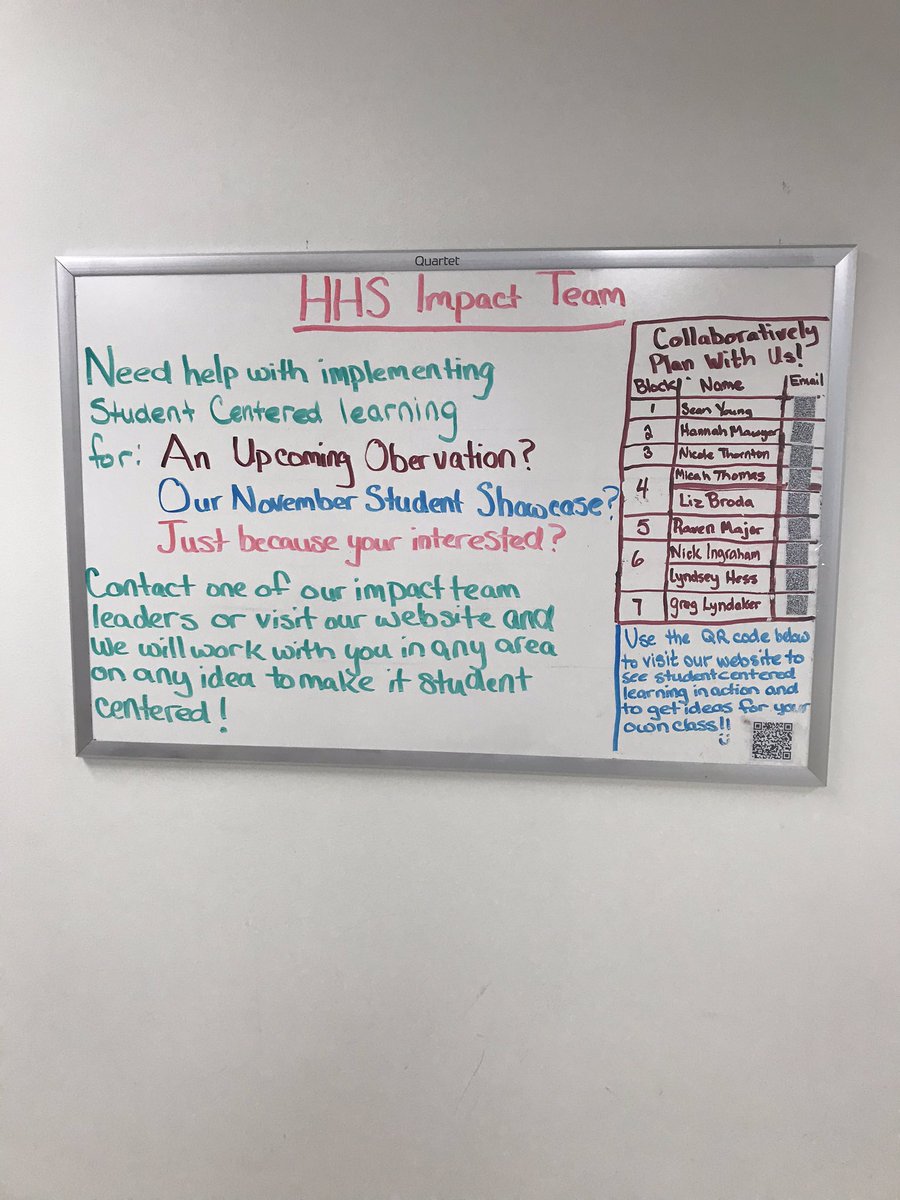 Quartet
HHS Impact Team
Need help with implementing
Student Centered learning
for: An Upcoming Obervation?
Our November Student Showcase?
Just because your interested?
Contact one of our impact team
leaders or visit our website and
we will work with you in any area
on any idea to make it student
centered!
Collaboratively
Plan With Us!
Block Name Email
1 Sean Young
2 Hannah
3 Nicole Thornton
4 Micah Thomas
Liz Broda
5 Raven Major
6 Nick Ingraham
Lyndsey Hess
7 Greg Lyndaker
Use the QR code below
to visit our website to
see student centered
learning in action and
to get ideas for your
own class!!